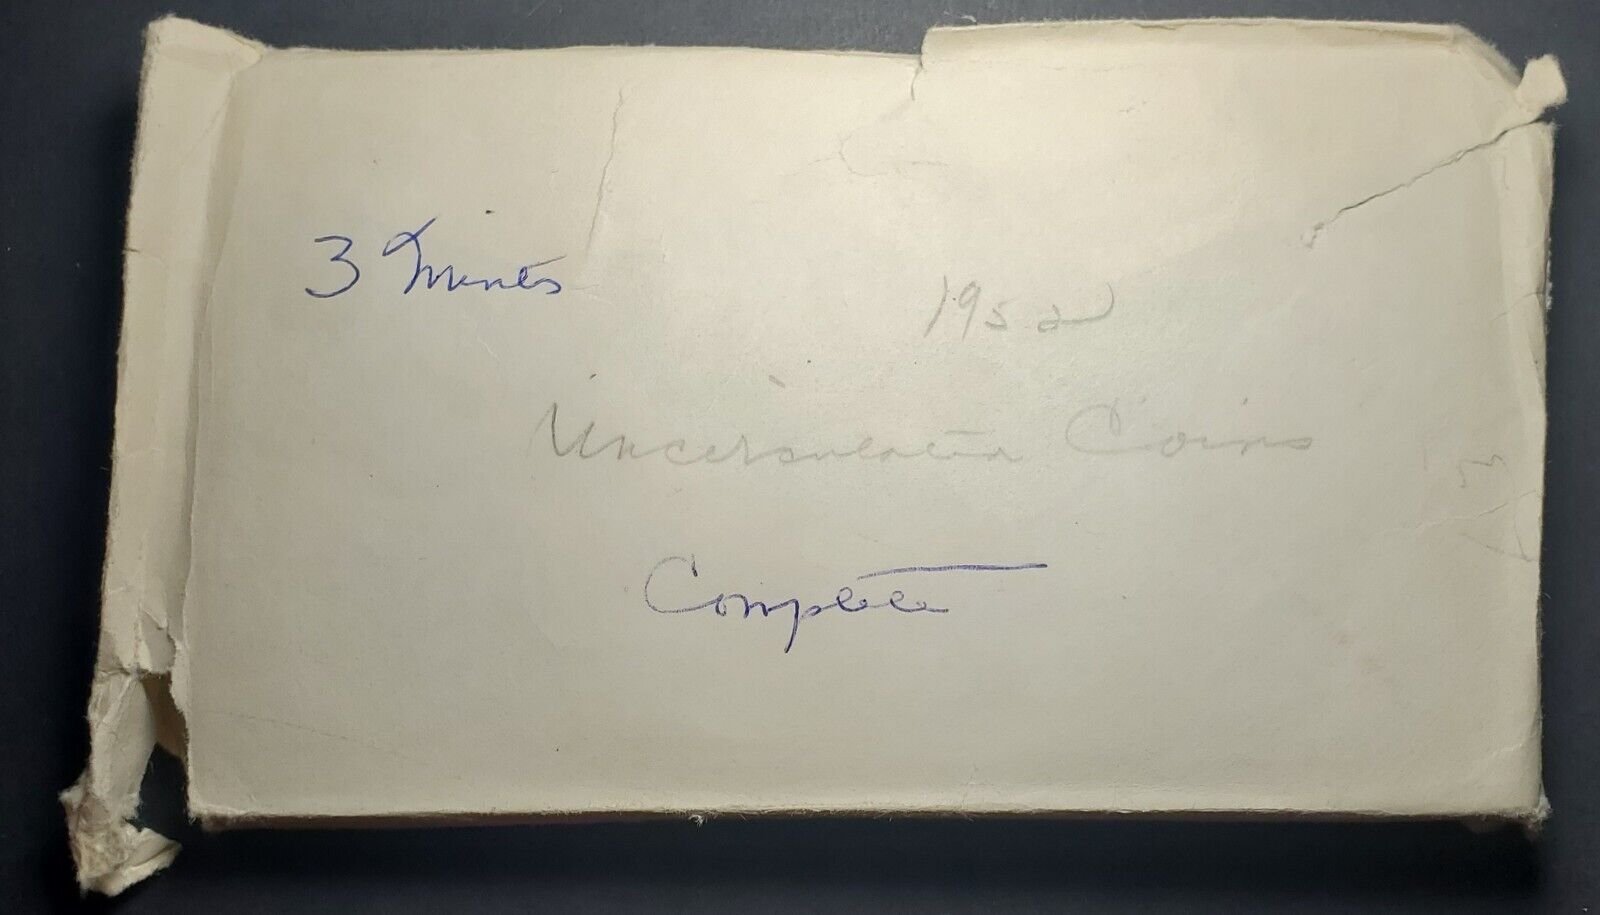 3 Mints
1952
Uncirculated Coins
Complete